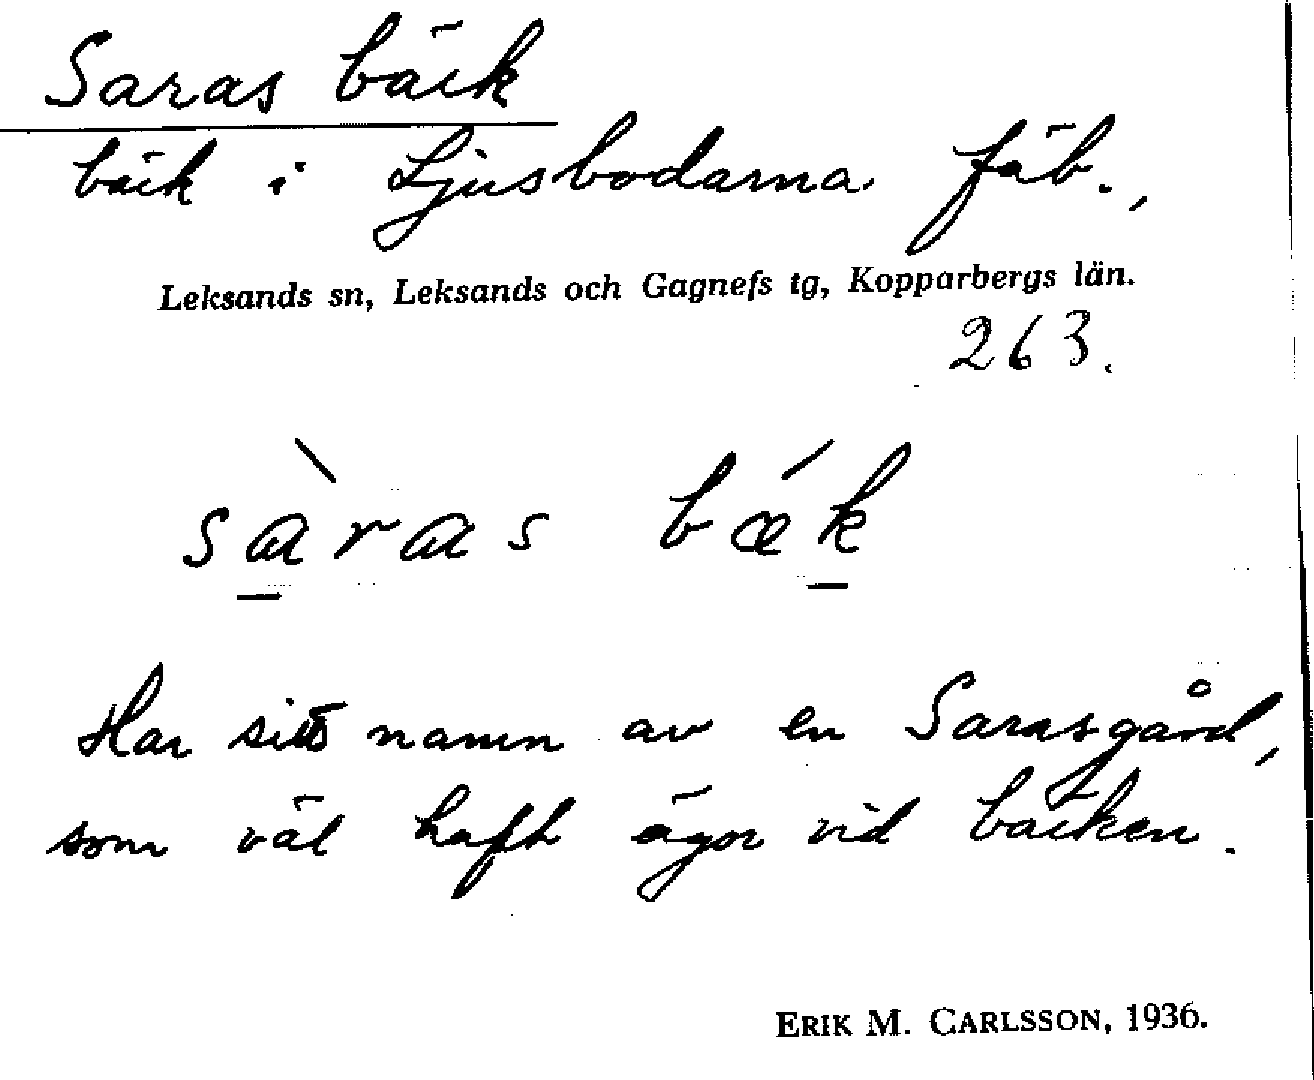 Saras bäck
bäck i Ljusbodarna fäb.,
Leksands sn, Leksands och Gagnefs tg, Kopparbergs län.
263.
sà̱ras bǽḵ
Har sitt namn av en Sarasgård,
som väl haft ägor vid bäcken.
ERIK M. CARLSSON, 1936.